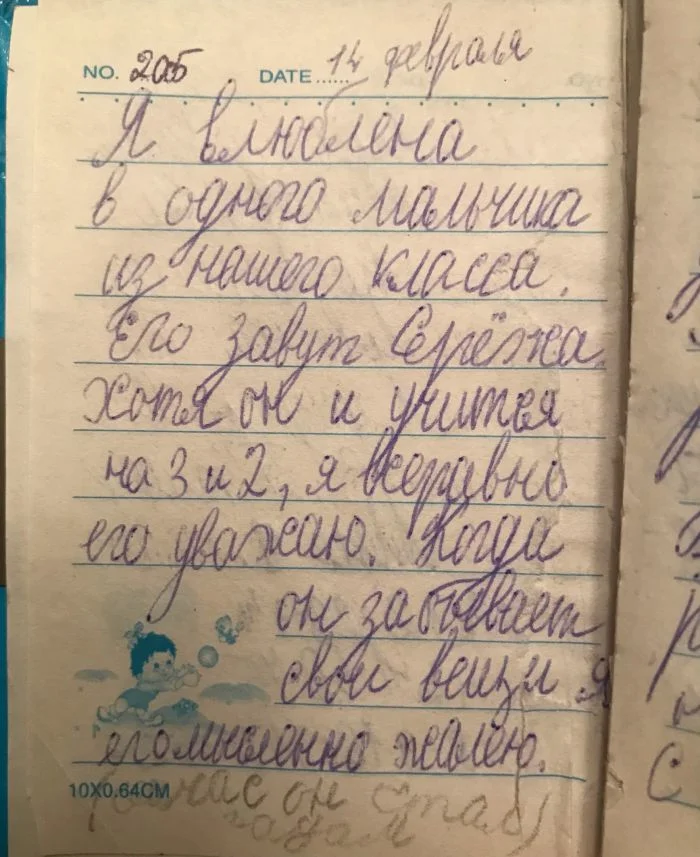 NO. 2а5 DATE...... 14 февраля
Я влюблена
в одного мальчика
из нашего класса.
Его завут Серёжа.
Хотя он и учится
на 3 и 2, я всеравно
его уважаю. Когда
он забывает
свои вещи я
его мысленно жалею.
10X0.64CM
(сичас он стал)
гадам